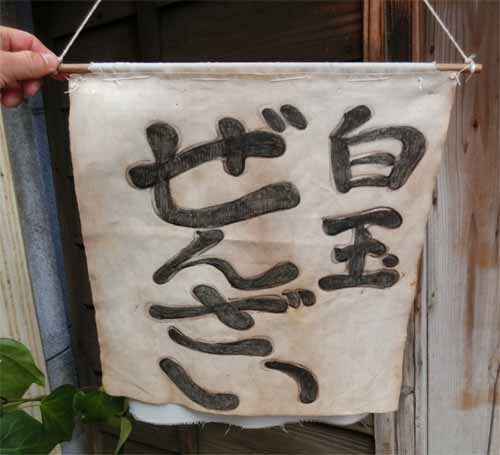 白玉
ぜんざい